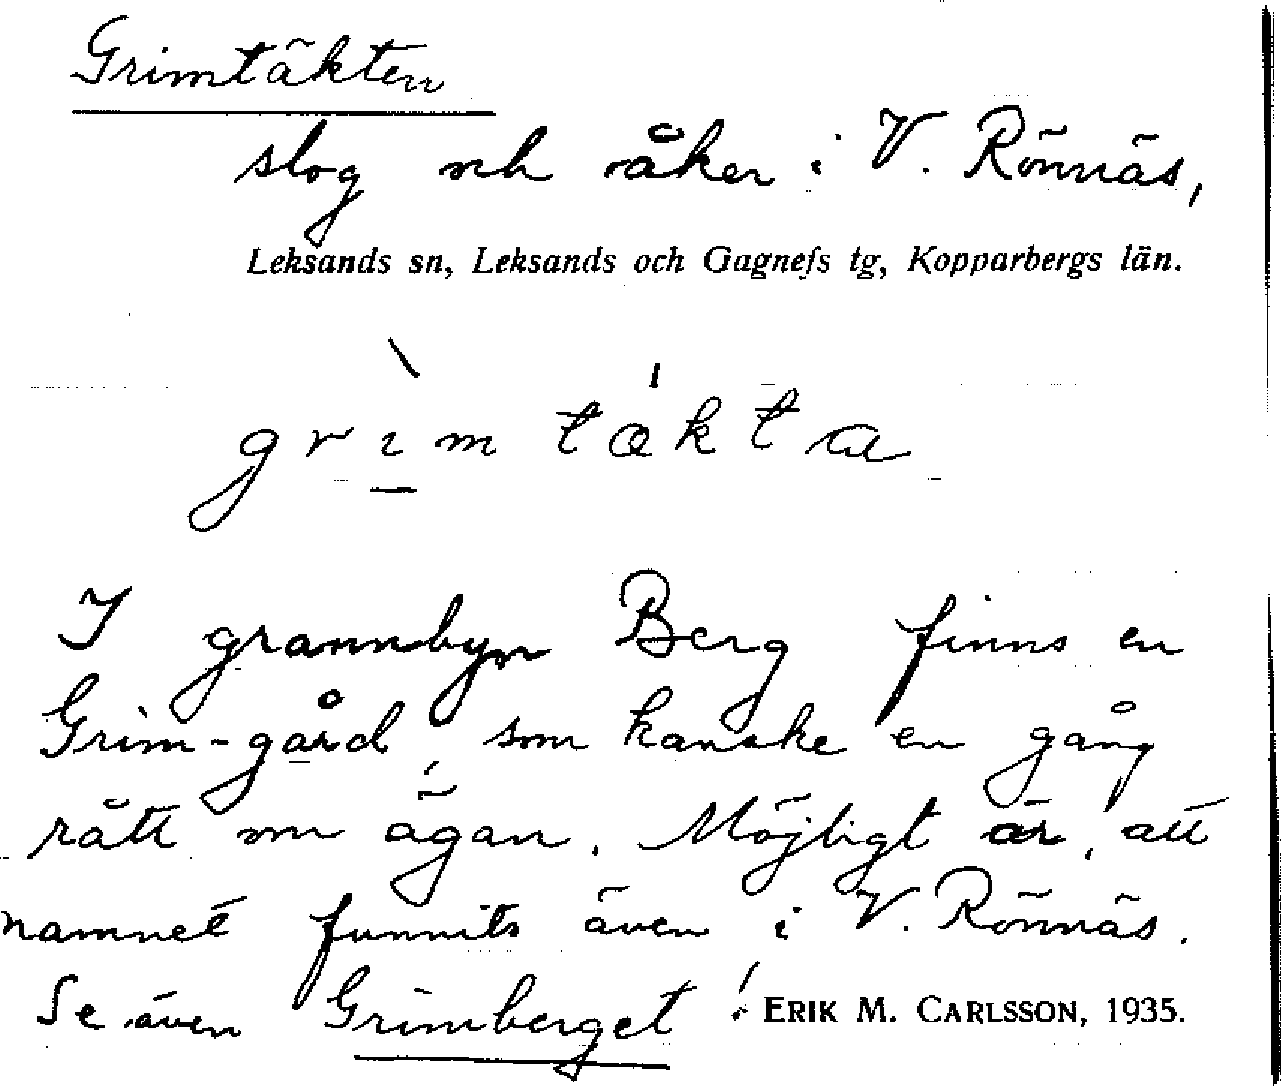 Grimtäkten
slog och åker i V. Rönnäs,
Leksands sn, Leksands och Gagnefs tg, Kopparbergs län.
grìm tǽkta
I grannbyn Berg finns en
Grim-gård, som kanske en gång
rått om ägan. Möjligt är, att
namnet funnits även i V. Rönnäs.
Se även Grimberget! ERIK M. CARLSSON, 1935.